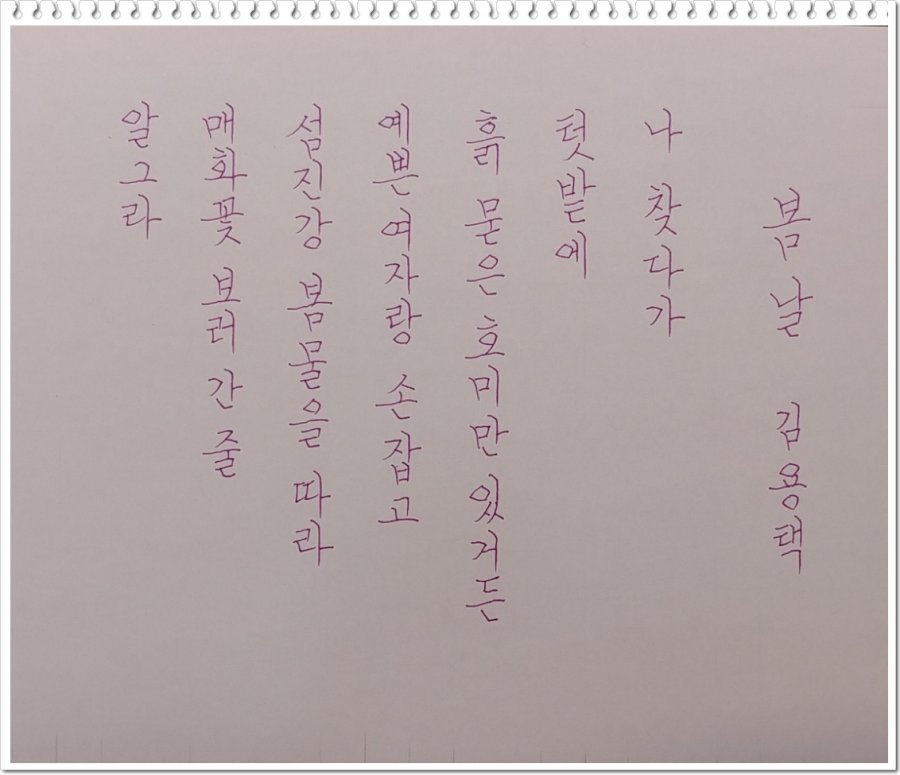 봄날 김용택
나 찾다가
텃밭에
흙 묻은 호미만 있거든
예쁜 여자랑 손잡고
섬진강 봄물을 따라
매화꽃 보러 간 줄
알그라